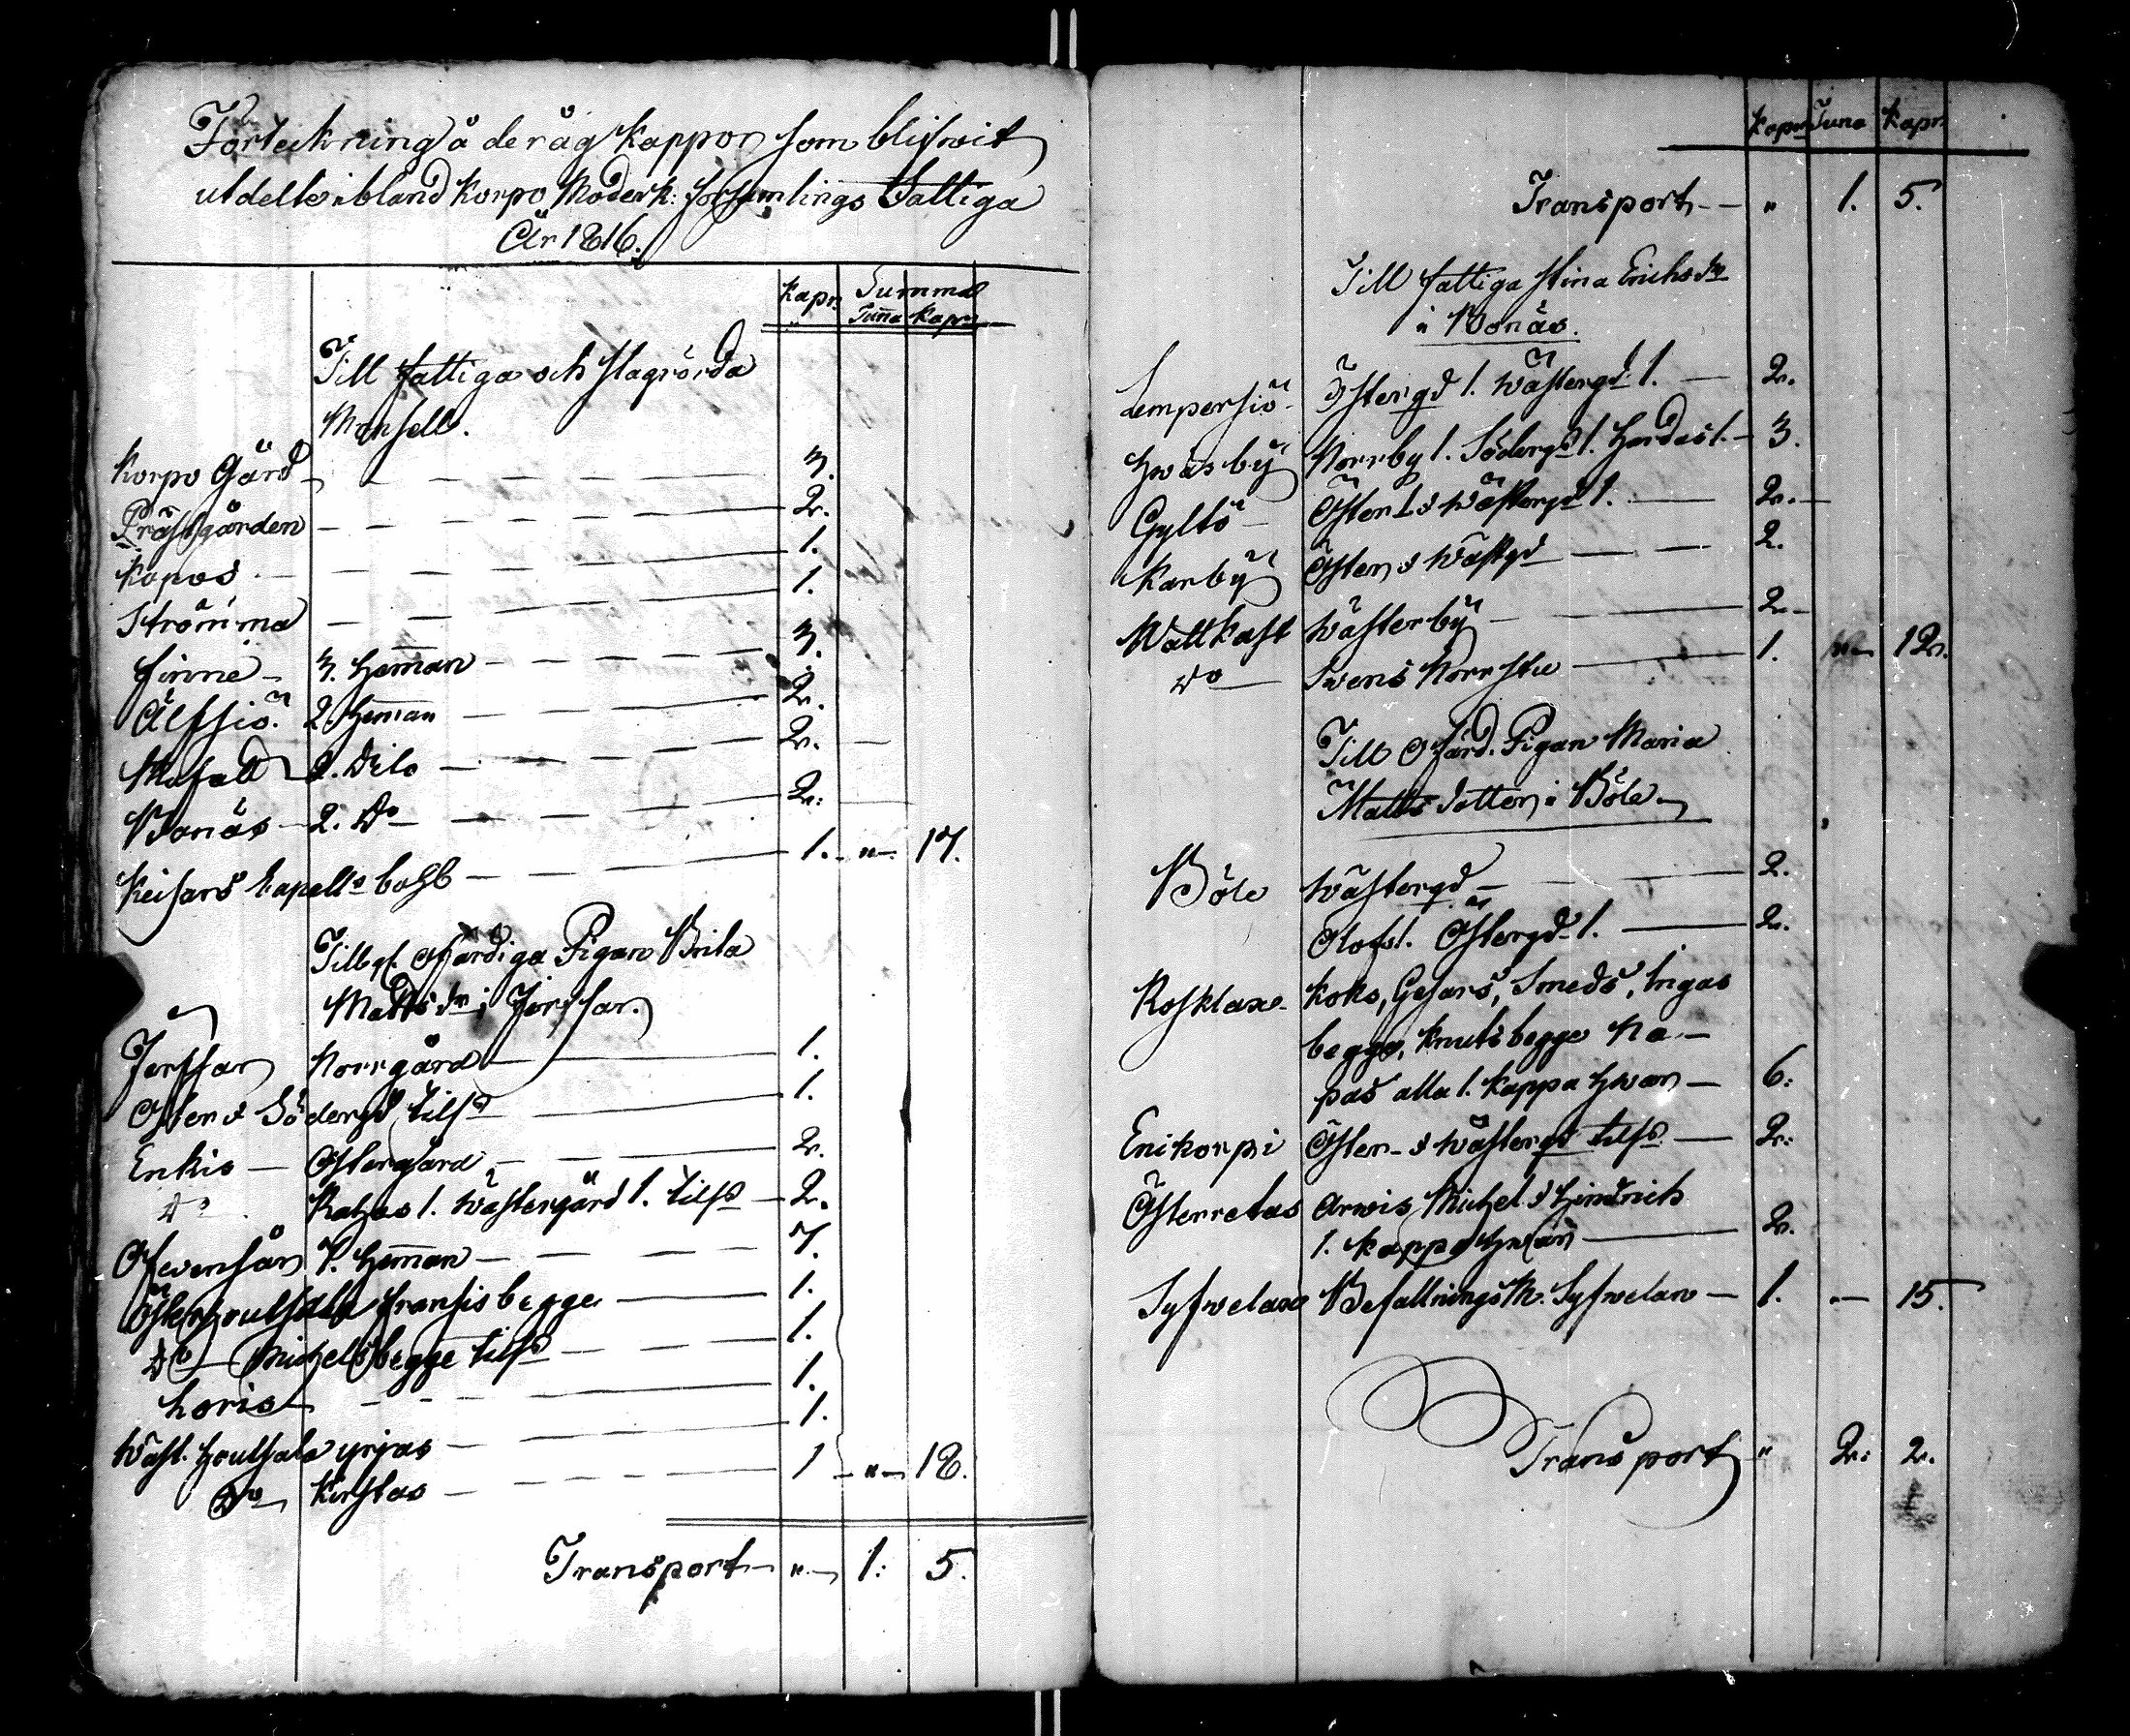 Förteckning å de råg kappor som blifwit
utdelte ibland Korpo Moderk: församlings Fattiga
År 1816.
Kapr. Summa
Tunna Kapr
Till fattiga och slagrörda
Monsell.
Korpo Gård 3.
Prästgården 2.
Kopos 1.
Strömma 1.
Finne 3. Heman 3.
Älfsiö 2 Heman 2.
Mufall 2. Dito 2.
Bonäs 2. Do 2.
Keisars Capells bohl 1. " 17.
Till ofärdiga Pigan Brita
Matts dr i Jerssar.
Jerssar Norrgård 1.
Öster & Södergd tilss 1.
Enkis Östergård 2.
Do Katzas 1. Wästergård 1. tilss 2.
Ofvensår 7. Heman 7.
Österhoutsala Fransis begge 1.
Do Michels begge tilss 1.
Loris 1.
Wäst. Houtsala yrjas 1.
Do Kerstas 1 " 18.
Transport " 1: 5.
Kapr Tuna Kapr
Transport " 1. 5.
Till fattiga Stina Erichsdr
i Bonäs.
Lempersiö Östergd 1. Wästergd 1. 2.
Hwasby Norrby 1. Södergd 1. Hendas 1. 3.
Gyltö Öster 1 & Wästergd 1. 2.
Karby Öster & Wästgd 2.
Wattkast Wästerby 2
Do Swens Norrstu 1. " 12.
Till Ofärd. Pigan Maria
Matts dotter i Böle
Böle Wästergd 2.
Olofs 1. Östergd 1. 2.
Rosklax Koks, Gesars, Smeds, Ingas
begge, Knuts begge Na-
pas alla 1. kappa hwar 6:
Enikorpi Öster & Wästergd tilss 2:
Österretas Arwis Michel & Hindrich
1. kappa hwar 2.
Syfwelax Befallningsm. Syfwelan 1. 15.
Transport " 2: 2.